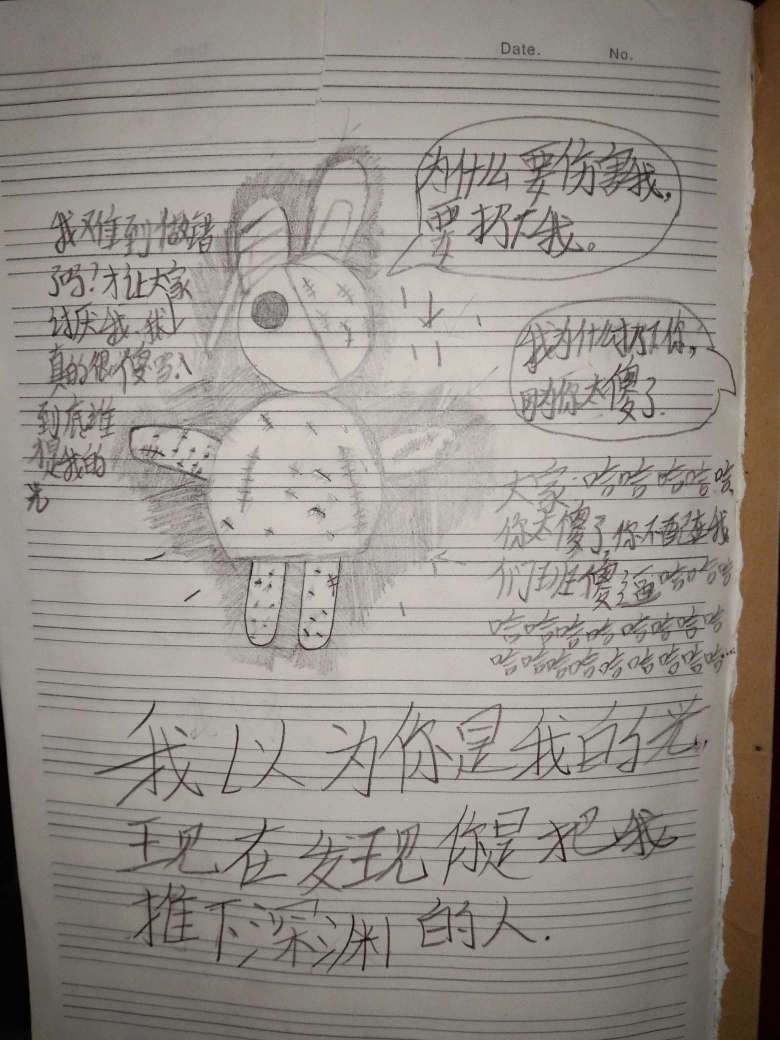 Date.
No.
为什么要伤害我,
要扔下我。
我难到做错
了吗?才让大家
讨厌我,我
真的很傻吗
到底谁
才是我的
光
我为什么扔了你,
因为你太傻了.
大家:哈哈哈哈哈
你太傻了你不配在我
们班傻逼哈哈哈
哈哈哈哈哈哈哈哈
哈哈哈哈哈哈哈哈哈…
我以为你是我的光,
现在发现你是把我
推下深渊的人.